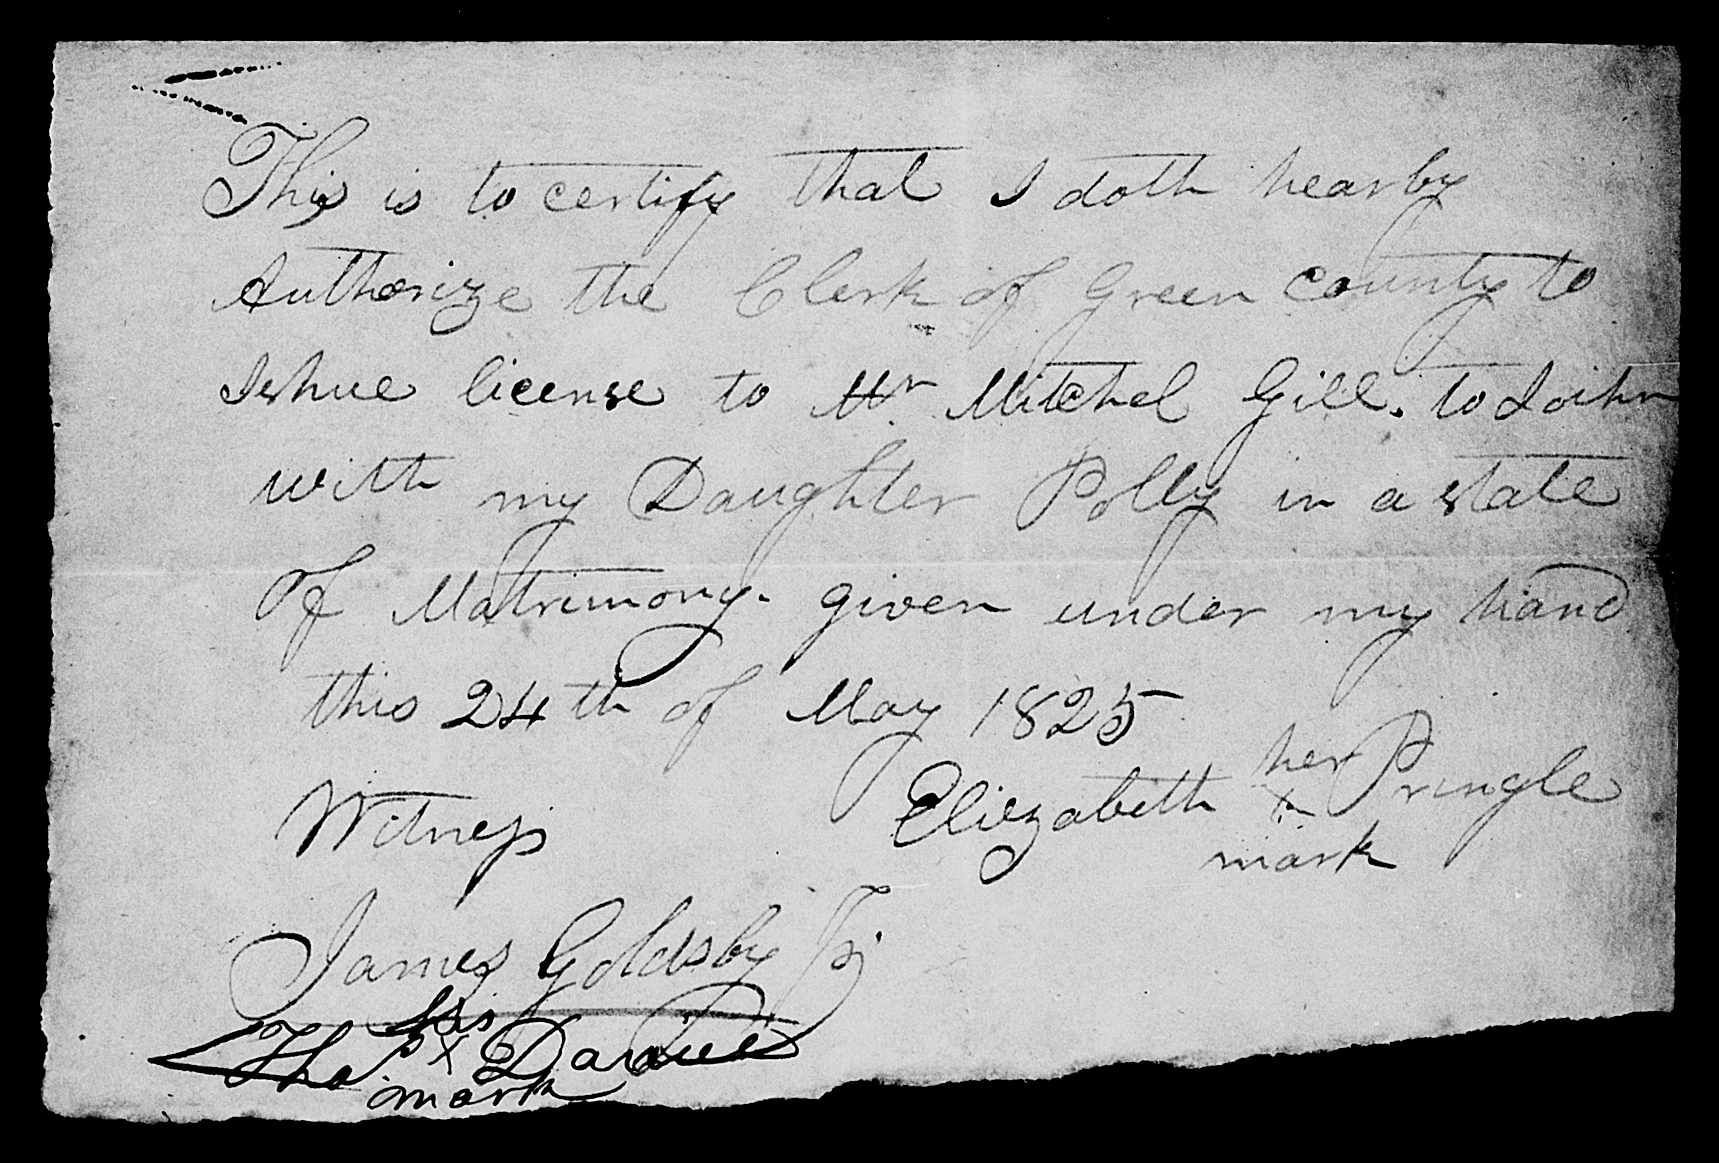 This is to certify that I doth hearby
Authorize the Clerk of Green county to
Ishue license to Mr Mitchel Gill. to Joihn
with my Daughter Polly in a state
of Matrimony. given under my hand
this 24th of May 1825
her
Eliezabeth x Pringle
mark
Witness
James Goldsby Jr
his
Thos x
mark